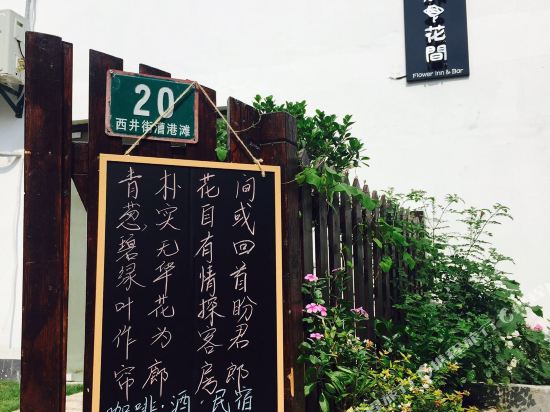 花間
Flower Inn & Bar
20
西井街漕港滩
青葱碧绿叶作帘
朴实无华花为廊
花自有情探客房
间或回首盼君郎
咖啡·酒·民宿